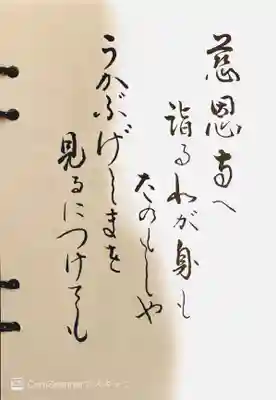 慈恩寺へ
詣るわが身も
たのもしや
うかぶげしまを
見るにつけても
CamScanner でスキャン